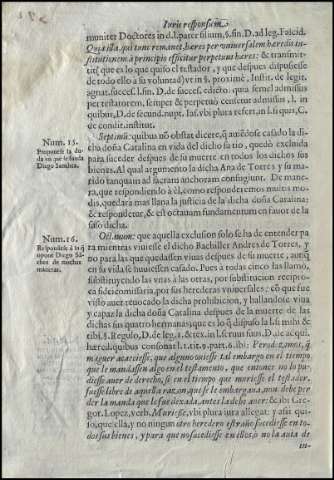 Iuris responsum
muniter Doctores in d.l. pater filium, §. fin. D. ad leg. Falcid.
Quia illa, qui tunc remanet hæres per vniuersalem hæredis in-
stitutionem, à principio efficitur perpetuus hæres: & transmit-
que es lo que quiso el testador, y que despues dispusiesse
de todo ella a su voluntad, vt in §. proximè, Instit. de legit.
agnat. succes. l. fin. D. de succes. edicto. quia semel admissus
per testatorem, semper & perpetuò censetur admissus, l. in
quibus, D. de secund. nupt. Ias. vbi plura refert, in l. si quis, C.
de condit. institut.
Num. 15.
Proponese la du-
da en que se funda
Diego Sanchez.
Septimò: quibus nõ obstat dicere, q̃ auiẽdose casado la di-
cha doña Catalina en vida del dicho su tio, quedò excluida
para suceder despues de su muerte en todos los dichos sus
bienes. Al qual argumento la dicha Ana de Torres y su ma-
rido tanquam ad sacram anchoram confugiunt. De mane-
ra, que respondiendo à èl, como responderemos muitos mo-
dis, quedara mas llana la justicia de la dicha doña Catalina:
& respondetur, & est octauum fundamentum en fauor de la
suso dicha.
Num. 16.
Respondese à lo q̃
opone Diego Sã-
chez de muchas
maneras.
Octauum: que aquella exclusion solo se ha de entender pa
ra mientras viuiesse el dicho Bachiller Andres de Torres, y
no para las que quedassen viuas despues de su muerte, aunq̃
en su vida se huuiessen casado. Pues à todas cinco las llamò,
substituyendo las vnas à las otras, por substitucion recipro-
ca fideicomissaria, por sus herederas vniuersales; cõ que fue
visto auer reuocado la dicha prohibicion, y hallandose viua
y capaz la dicha doña Catalina despues de la muerte de las
dichas sus quatro hermanas; que es lo q̃ dispuso la l. si mihi &
tibi, §. Regulo, D. de leg. 1. & tex. in l. seruus fum. D. de acqui.
hered. quibus consonat l. 1. tit. 9. part. 6. ibi: Pero dezimos, q̃
maguer acaeciesse, que alguno ouiesse tal embargo en el tiempo
que le mandassen algo en el testamento, que entonce no lo pu-
diesse auer de derecho, si en el tiempo que muriesse el testador,
fuesse libre de aquella razon, que se le embargaua, non deue per-
der la manda que le fue dexada, antes la deue auer: & ibi Gre-
gor. Lopez, verb. Muriesse, vbi plura iura allegat: y assi qui-
so, que ella, y no ningun otro heredero estraño sucediesse en to-
dos sus bienes, y para que no sucediesse en ellos, ò no la auia de
in-